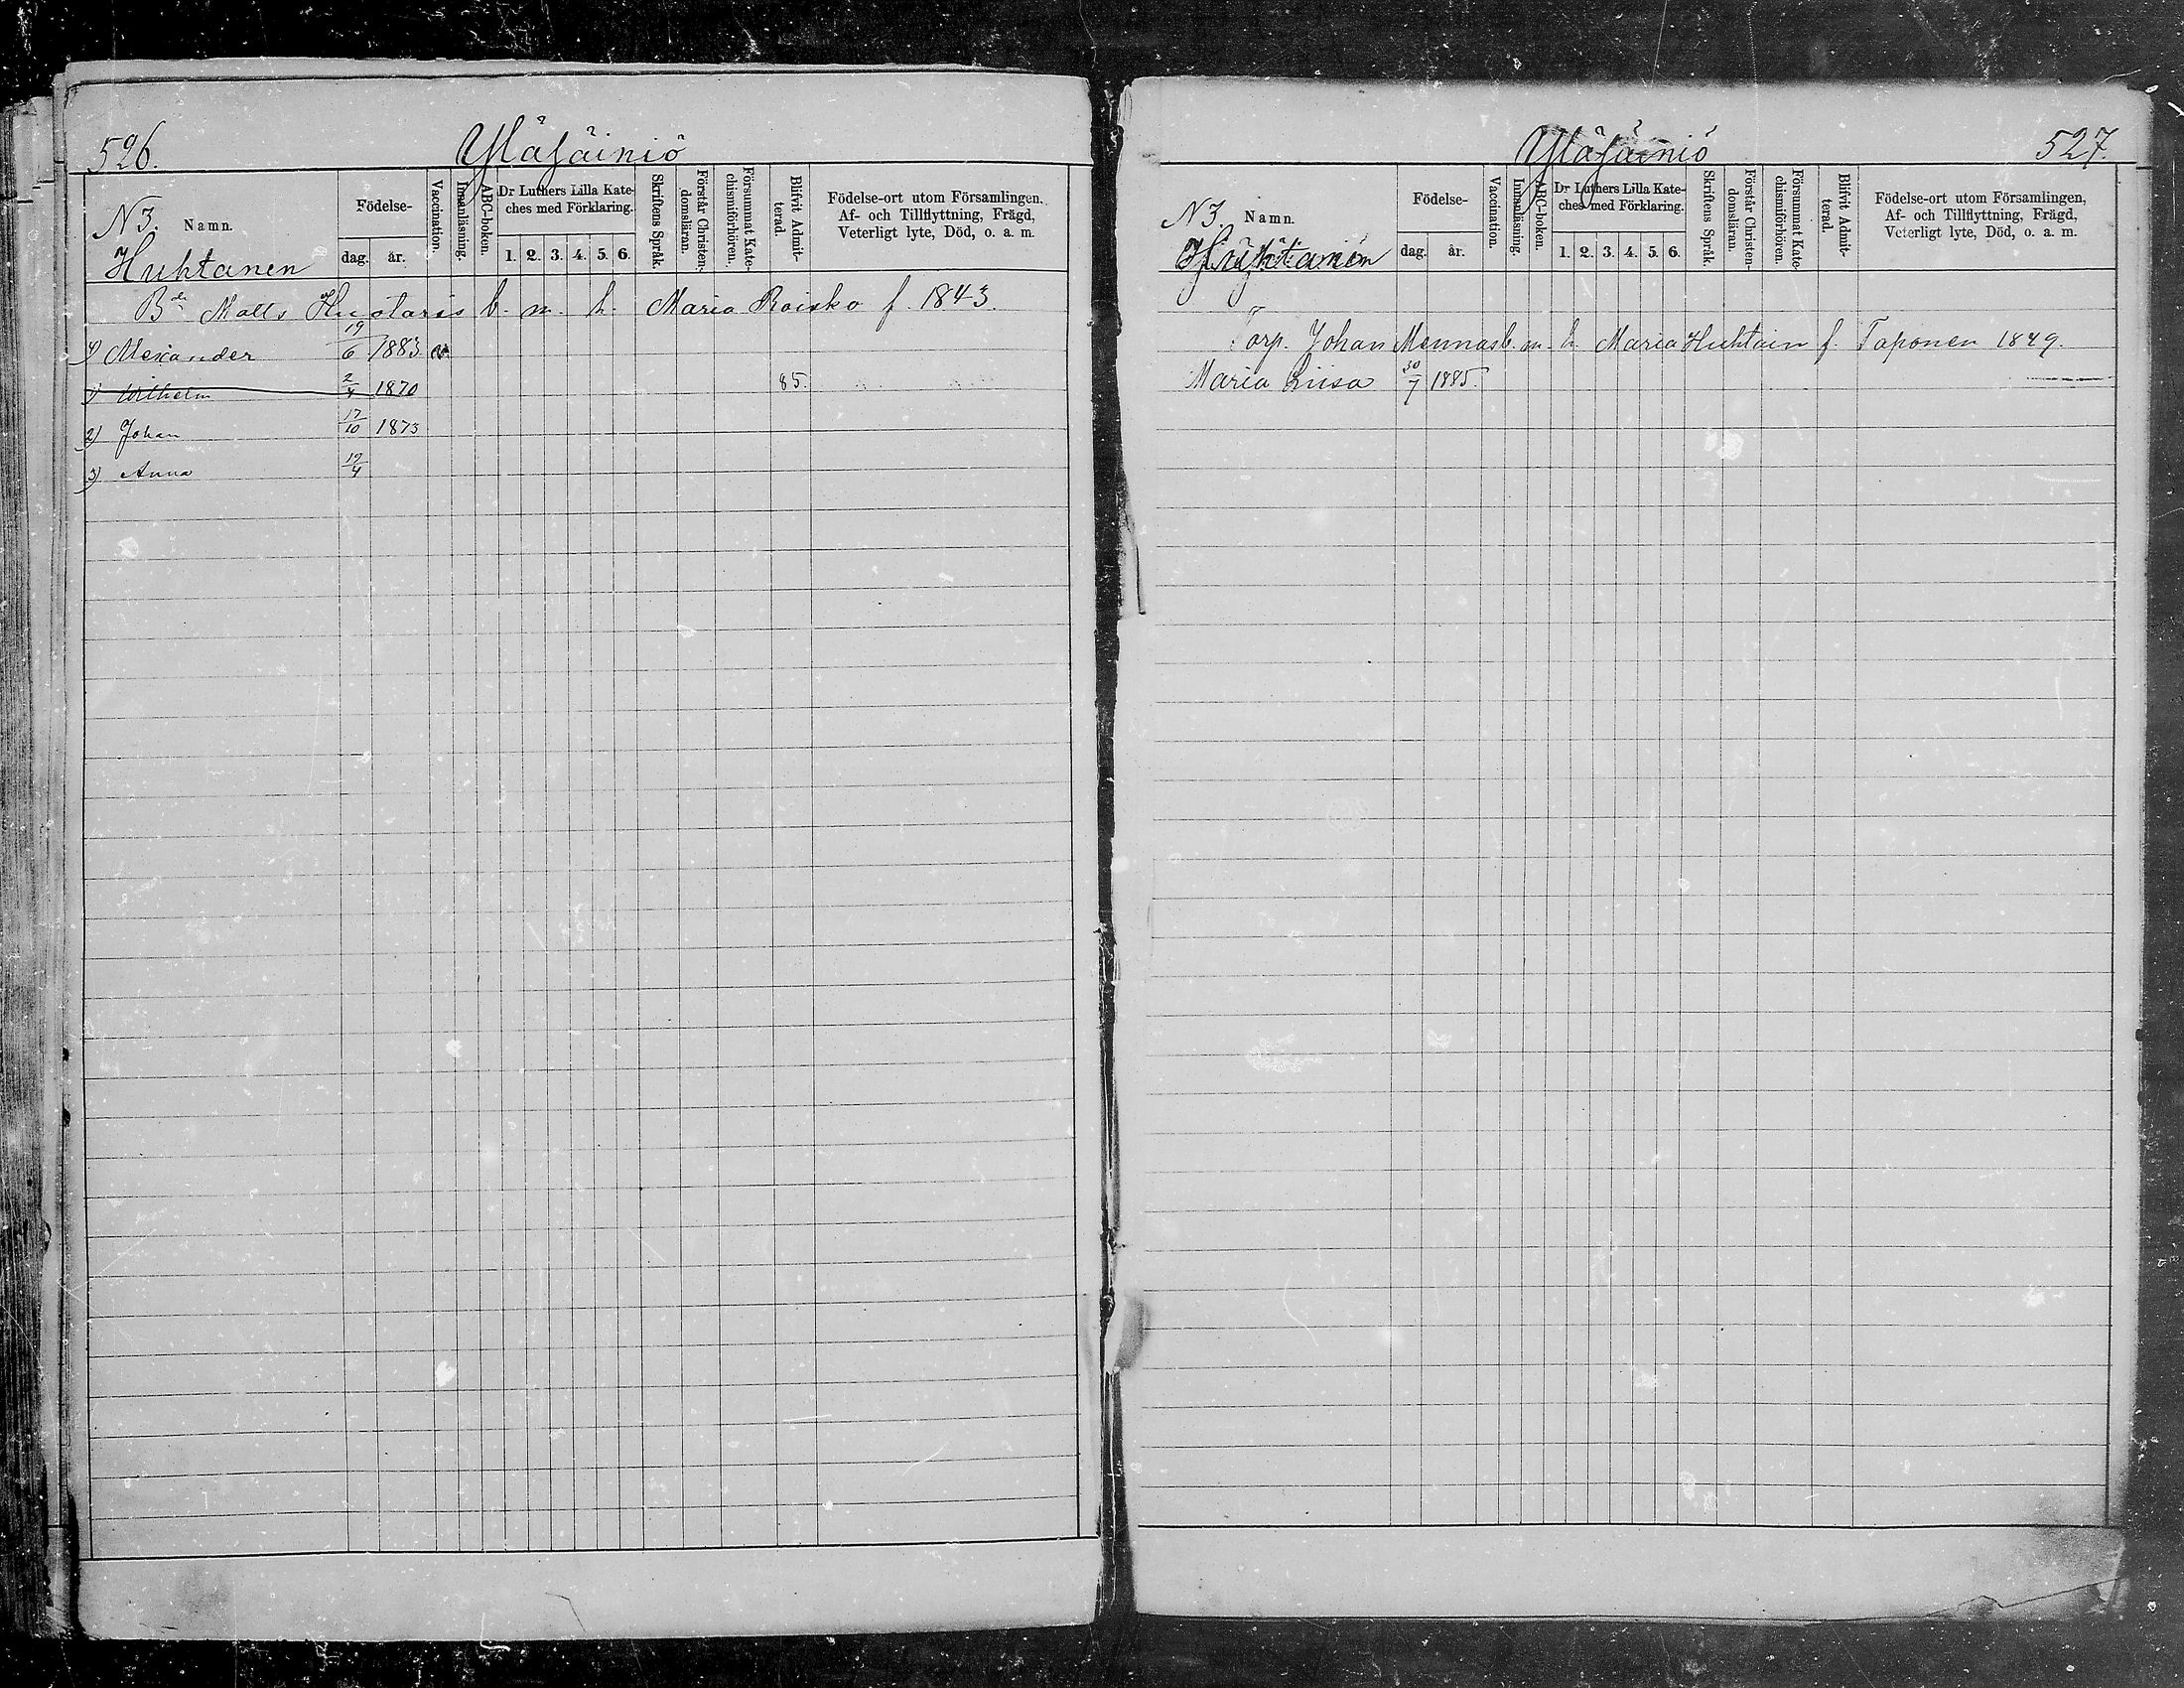 526.
Yläjäiniö
N 3. Namn.
Huhtanen
Födelse-
dag. år.
Vaccination.
Innanläsning.
ABC-boken.
Dr Luthers Lilla Kate-
ches med Förklaring.
1. 2. 3. 4. 5. 6.
Skriftens Språk.
Förstår Christen-
domsläran.
Försummat Kate-
chismiförhören.
Blifvit Admit-
terad.
Födelse-ort utom Församlingen.
Af- och Tillflyttning, Frägd,
Veterligt lyte, Död, o. a. m.
Matts b. m. h. Maria Roisko f. 1843.
4) Alexander 19/6 1883. v
1) Wilhelm 2/4 1870 85.
2) Johan 17/10 1873
3) Anna 19/4
Yläjäiniö
527.
N 3. Namn.
Huhtanen
Födelse-
dag. år.
Vaccination.
Innanläsning.
ABC-boken.
Dr Luthers Lilla Kate-
ches med Förklaring.
1. 2. 3. 4. 5. 6.
Skriftens Språk.
Förstår Christen-
domsläran.
Försummat Kate-
chismiförhören.
Blifvit Admit-
terad.
Födelse-ort utom Församlingen,
Af- och Tillflyttning, Frägd,
Veterligt lyte, Död, o. a. m.
Torp. Johan Mennas b. m. h. Maria Huhtain f. Taponen 1849.
Maria Liisa 30/7 1885.